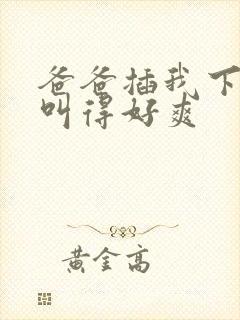 爸爸插我下
叫得好爽
黃金高